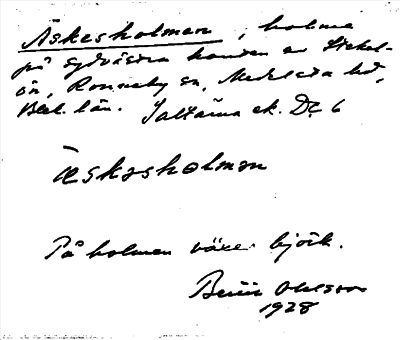 Äskesholmen, holme
på sydvästra kanten av Stekel-
ön, Ronneby sn, Medelsta hd,
Blek. län. Saltärna ek. DC 6
æskəshołmən
På holmen växer björk.
Bertil Ohlsson
1928